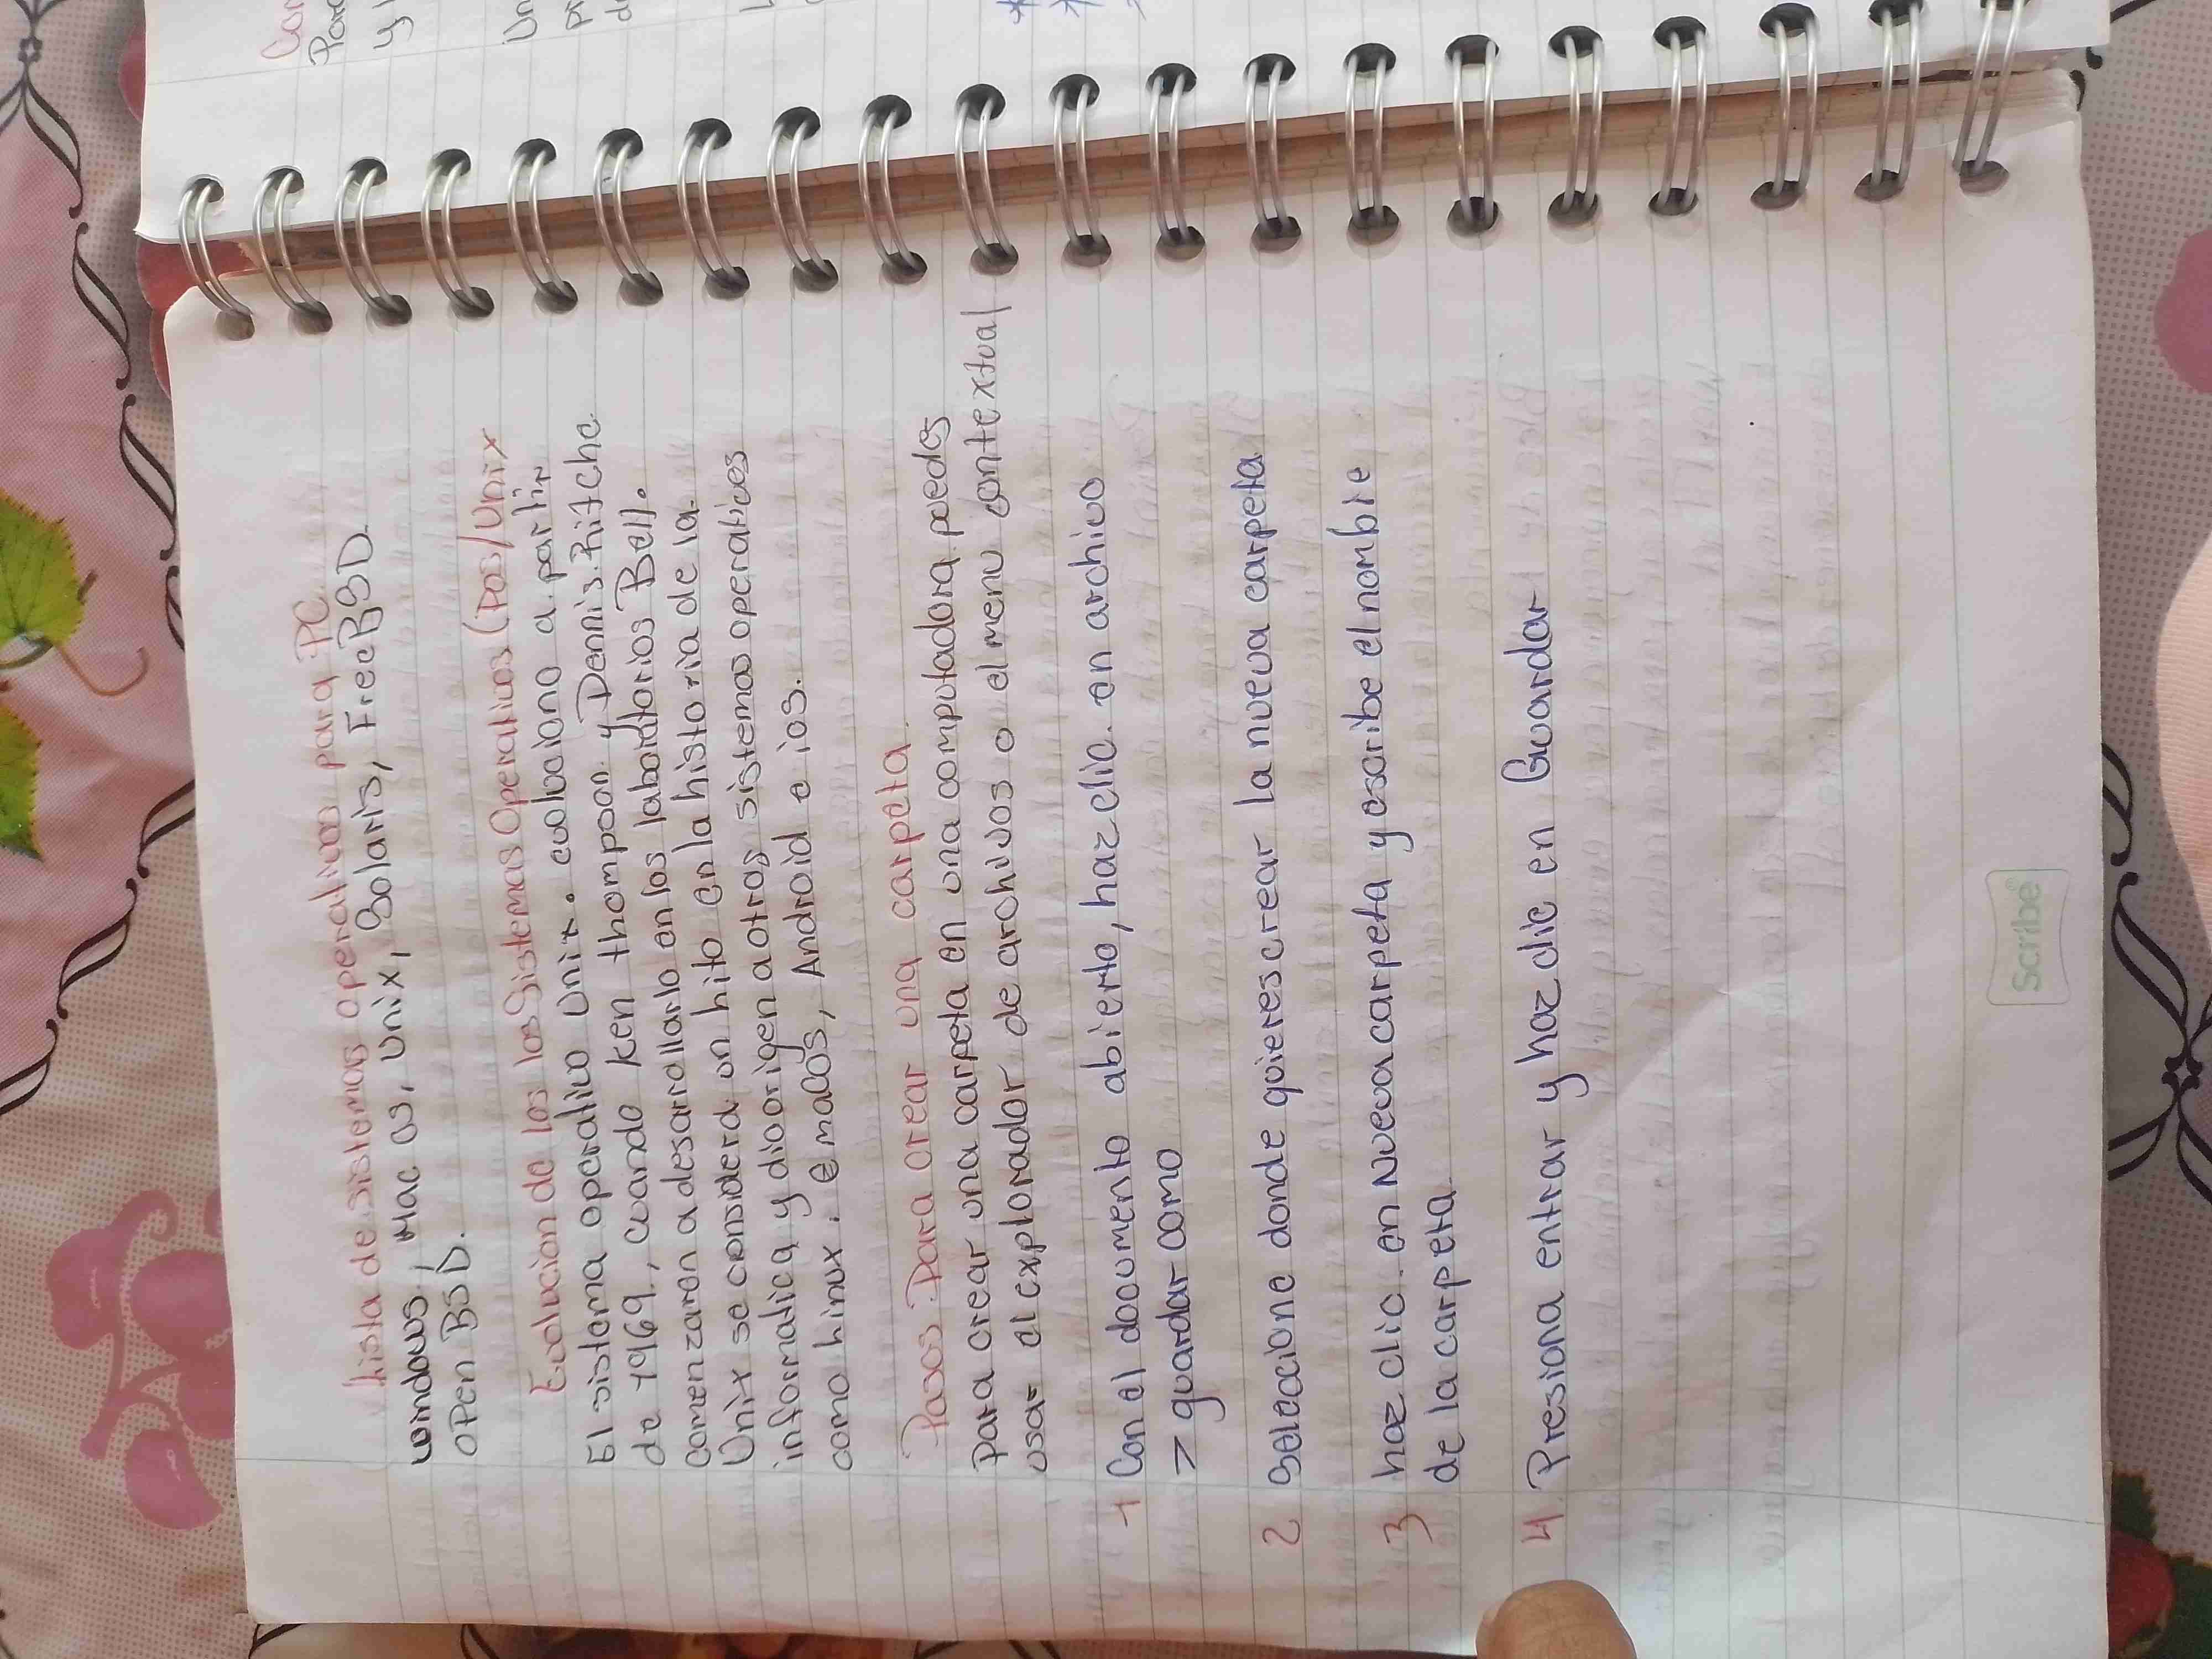 Lista de sistemas operativos para PC.
windows, Mac os, Unix, Solaris, FreeBSD.
OPen BSD.
Evolucion de los los Sistemas Operativos (Pos/Unix
El sistema operativo Unix. evolociono a partir
de 1969., cuando ken thompson y Dennis Ritche
comenzaron a desarollarlo en los laboratorios Bell.
Unix se considera un hito en la historia de la
informatica y dio origen a otros sistemas operatives
como linux. e macos, Android e ios.
Pasos Para crear una carpeta.
Para crear una carpeta en una computadora puedes
usar el explorador de archivos o el menu contextual
1 Con el documento abierto, haz clic en archivo
> guardar como
2 Seleccione donde quieres crear la nueva carpeta
3 haz clic. en Nueva carpeta y escribe el nombre
de la carpeta.
4 Presiona entrar y haz clic en Guardar
Scribe®